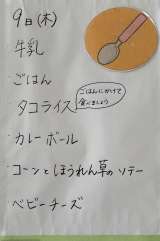 9日(木)
牛乳
ごはん
タコライス
ごはんにかけて
食べましょう
カレーボール
コーンとほうれん草のソテー
ベビーチーズ